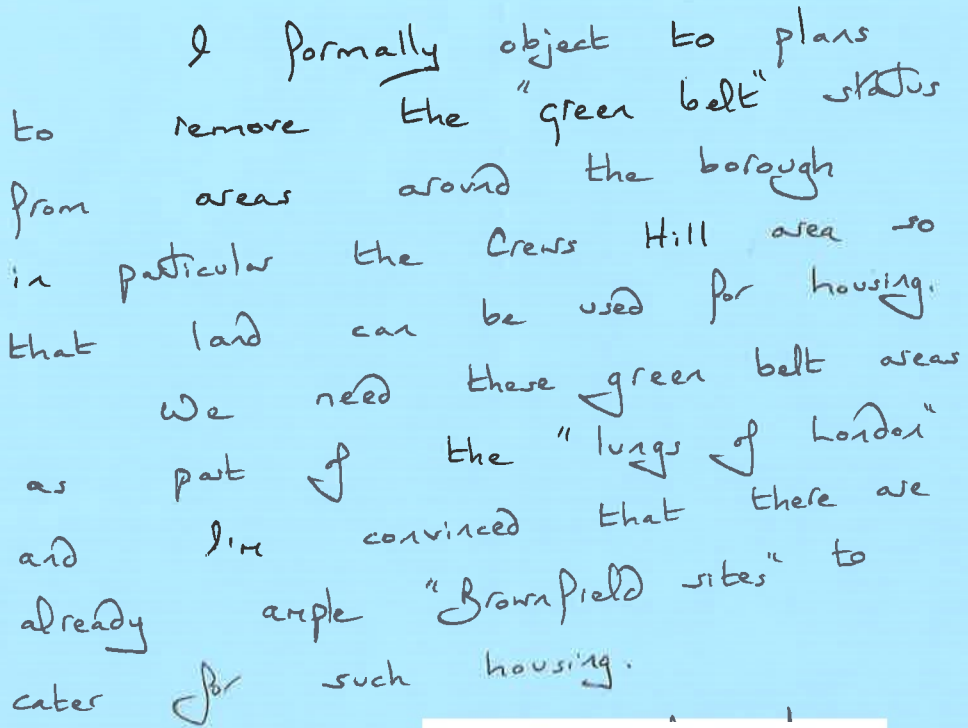 I formally object to plans
to remove the "green belt" status
from areas around the borough
in particular the Crews Hill area so
that land can be used for housing.
We need these green belt areas
as part of the "lungs of London"
and I'm convinced that there are
already ample "Brownfield sites" to
cater for such housing.